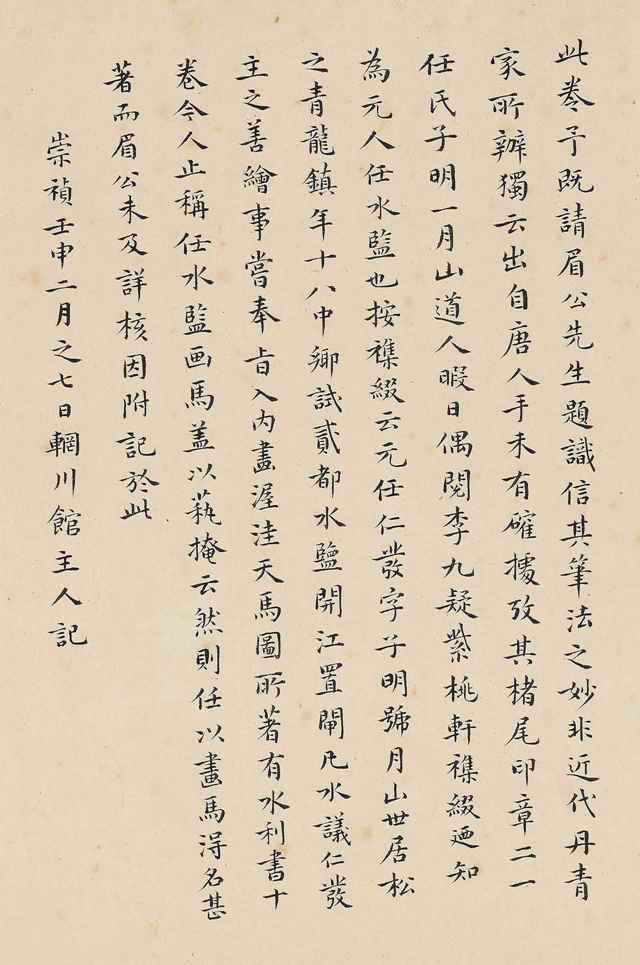 此卷予既請眉公先生題識信其筆法之妙非近代丹青
家所辦獨云出自唐人手未有確據攷其楮尾印章二一
任氏子明一月山道人暇日偶閱李九疑紫桃軒襍綴廼知
為元人任水監也按襍綴云元任仁發字子明號月山世居松
之青龍鎮年十八中鄉試貳都水鹽開江置閘凡水議仁發
主之善繪事嘗奉旨入內畫渥洼天馬圖所著有水利書十
卷今人止稱任水監画馬盖以蓺掩云然則任以畫馬淂名甚
著而眉公未及詳核因附記於此
崇禎壬申二月之七日輞川館主人記